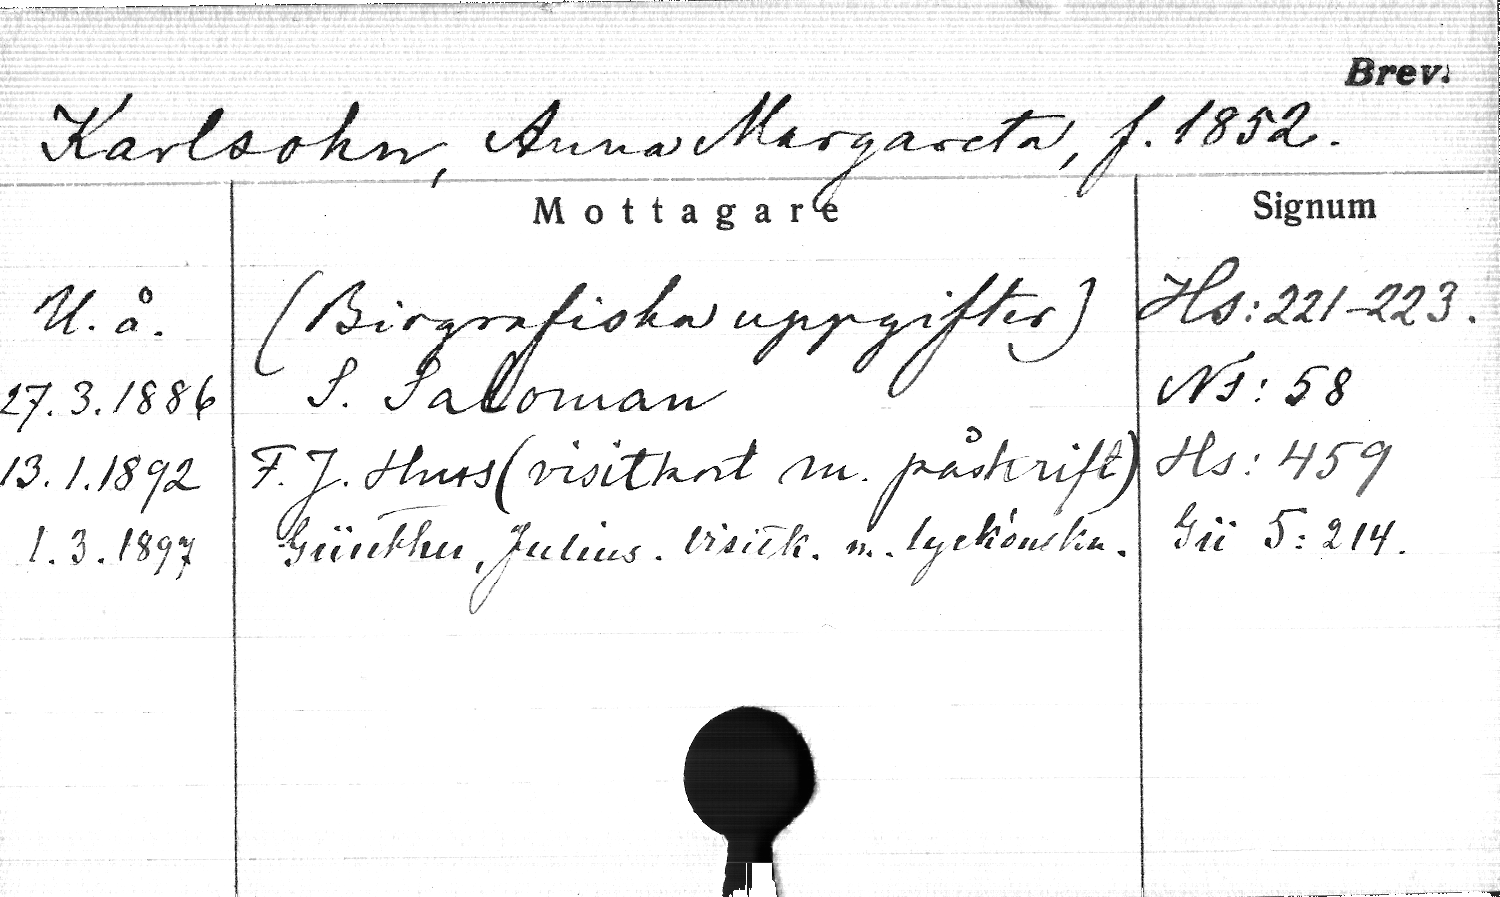 Brev.
Karlsohn, Anna Margareta, f. 1852.
Mottagare Signum
U. å. (Biografiska uppgifter) Hs: 221-223.
27.3.1886 S. Saloman Ns: 58
13.1.1892 F. J. Huss (visitkort m. påskrift) Hs: 459
1.3.1897 Günther, Julius. Visitk. m. lyckönskn. Gü 5: 214.